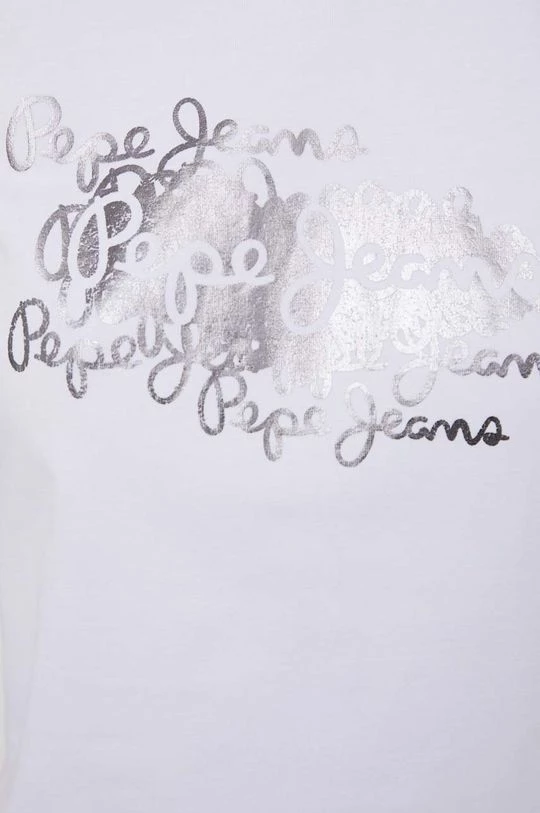 Pepe Jeans
Pepe Jeans
Pepe Jeans
Pepe Jeans